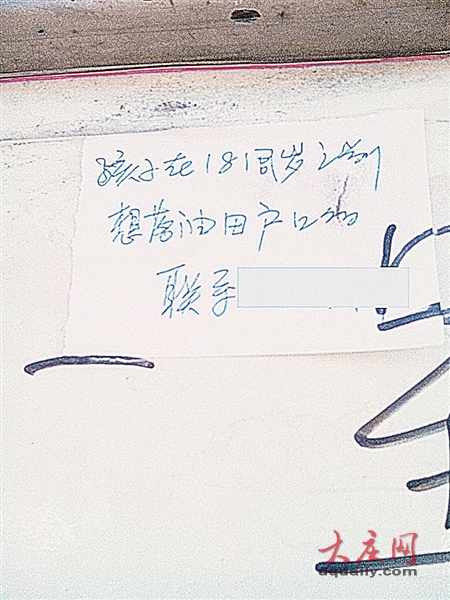 孩子在18周岁之前
想落油田户口的
联系
大庆网
dqdaily.com